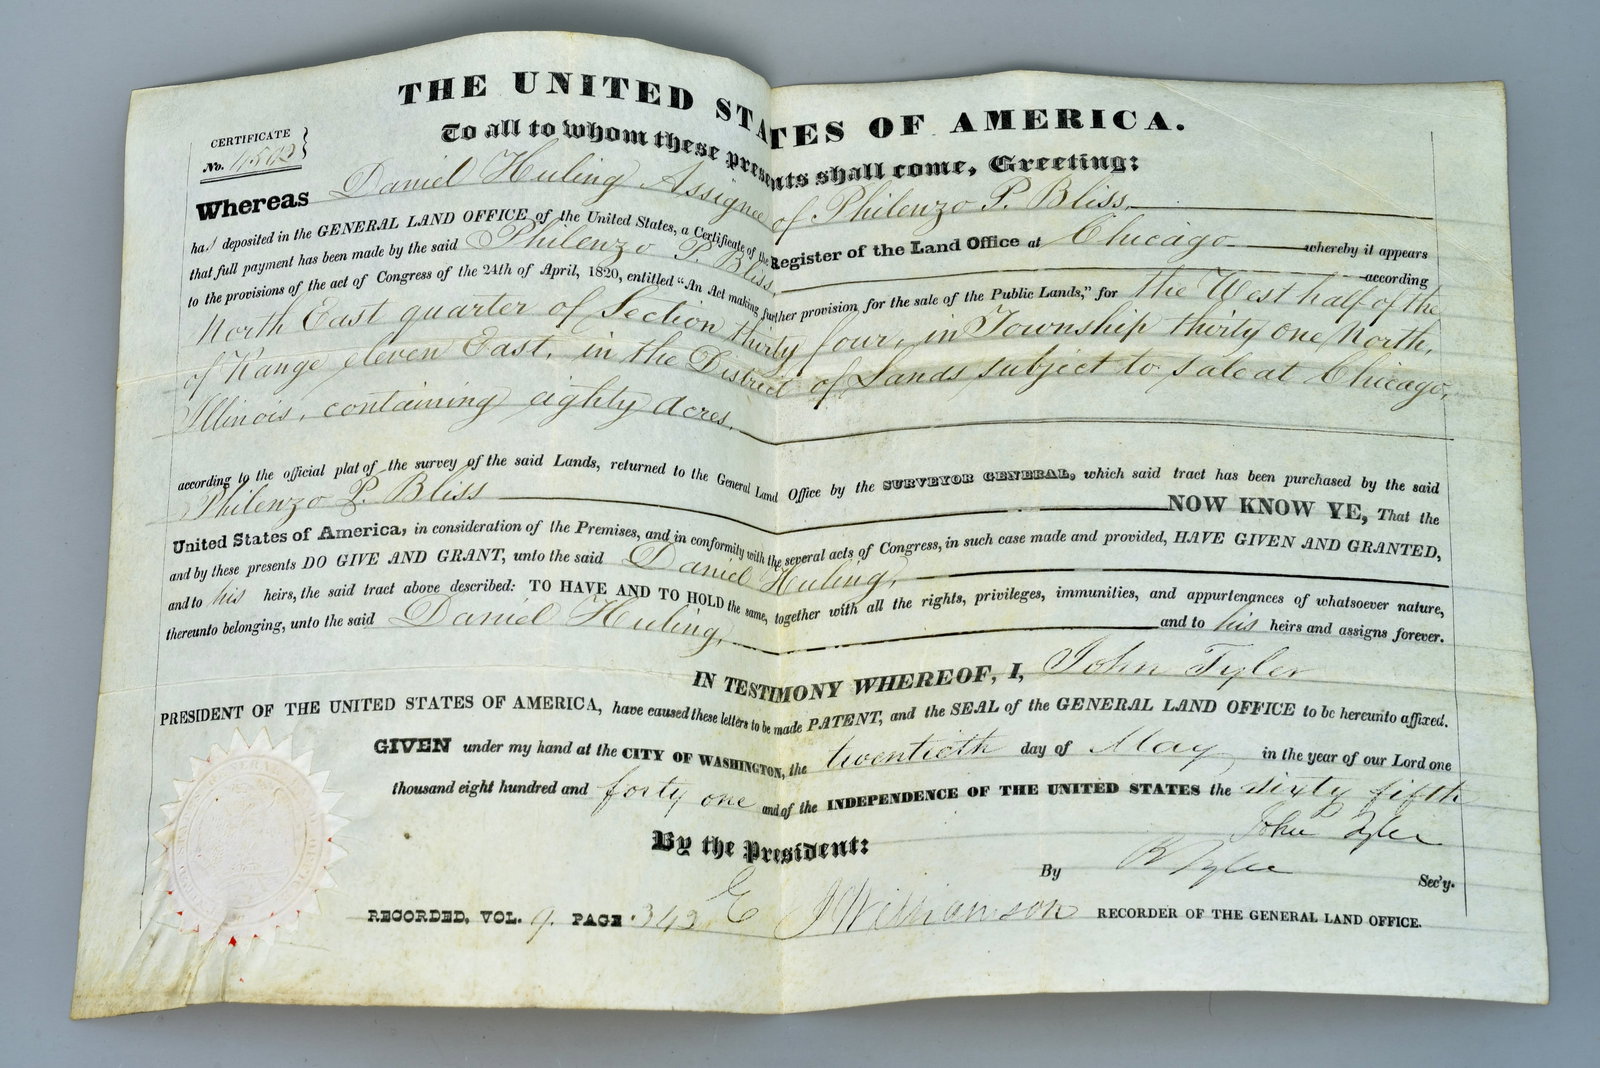 THE UNITED STATES OF AMERICA.
To all to whom these presents shall come, Greeting:
CERTIFICATE
No.
Whereas Daniel Huling Assignee of Philenzo P. Bliss,
has deposited in the GENERAL LAND OFFICE of the United States, a Certificate of the Register of the Land Office at Chicago whereby it appears
that full payment has been made by the said Philenzo P. Bliss, according
to the provisions of the act of Congress of the 24th of April, 1820, entitled “An Act making further provision for the sale of the Public Lands,” for the West half of the
North East quarter of Section thirty four, in Township thirty one North,
of Range eleven East, in the District of Lands subject to sale at Chicago,
Illinois, containing eighty acres,
according to the official plat of the survey of the said Lands, returned to the General Land Office by the SURVEYOR GENERAL, which said tract has been purchased by the said
Philenzo P. Bliss NOW KNOW YE, That the
United States of America, in consideration of the Premises, and in conformity with the several acts of Congress, in such case made and provided, HAVE GIVEN AND GRANTED,
and by these presents DO GIVE AND GRANT, unto the said Daniel Huling,
and to his heirs, the said tract above described: TO HAVE AND TO HOLD the same, together with all the rights, privileges, immunities, and appurtenances of whatsoever nature,
thereunto belonging, unto the said Daniel Huling, and to his heirs and assigns forever.
IN TESTIMONY WHEREOF, I, John Tyler
PRESIDENT OF THE UNITED STATES OF AMERICA, have caused these letters to be made PATENT, and the SEAL of the GENERAL LAND OFFICE to be hereunto affixed.
GIVEN under my hand at the CITY OF WASHINGTON, the twentieth day of May in the year of our Lord one
thousand eight hundred and forty one and of the INDEPENDENCE OF THE UNITED STATES the sixty fifth
By the President: John Tyler
By R Tyler Sec'y.
RECORDED, VOL. 9. PAGE 343 E J Williamson RECORDER OF THE GENERAL LAND OFFICE.